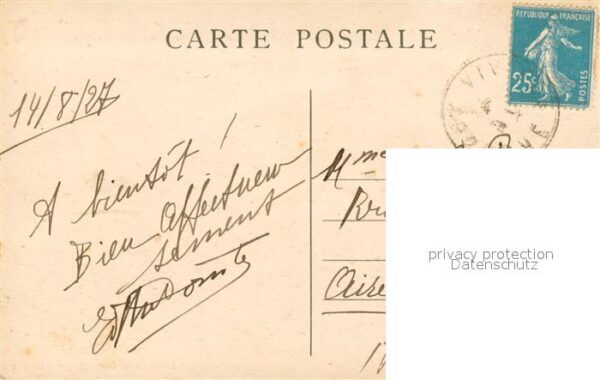 CARTE POSTALE
REPUBLIQUE FRANÇAISE
25c
POSTES
14/8/27
A bientôt !
Bien affectueu
sement
Mme
Aire
privacy protection
Datenschutz